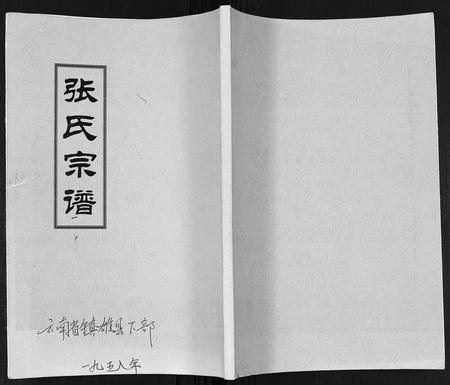 张氏宗谱
云南省镇雄县下部
一九五八年